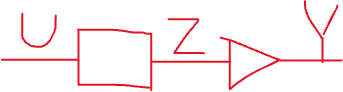 U Z Y